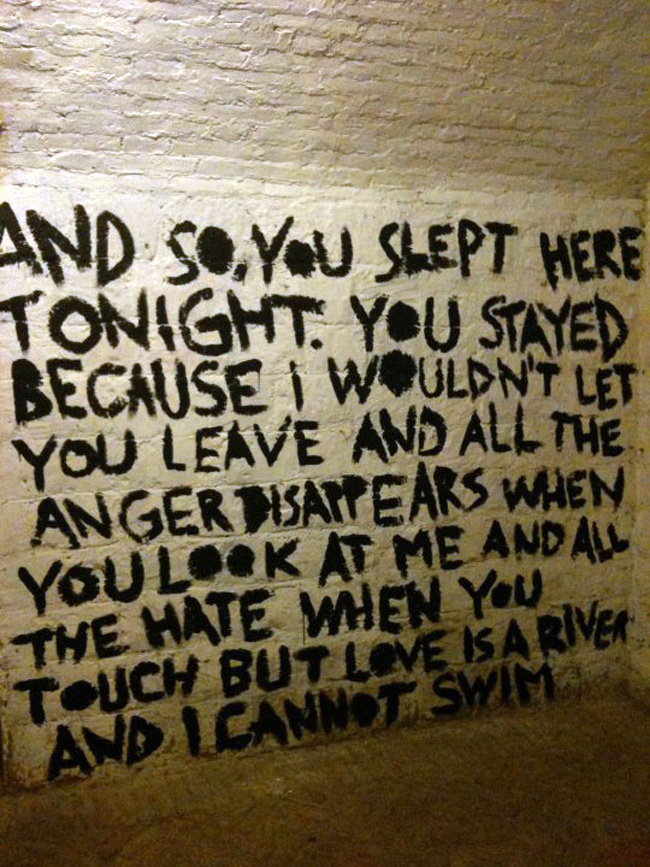 AND SO, YOU SLEPT HERE
TONIGHT. YOU STAYED
BECAUSE I WOULDN'T LET
YOU LEAVE AND ALL THE
ANGER DISAPPEARS WHEN
YOU LOOK AT ME AND ALL
THE HATE WHEN YOU
TOUCH BUT LOVE IS A RIVER
AND I CANNOT SWIM